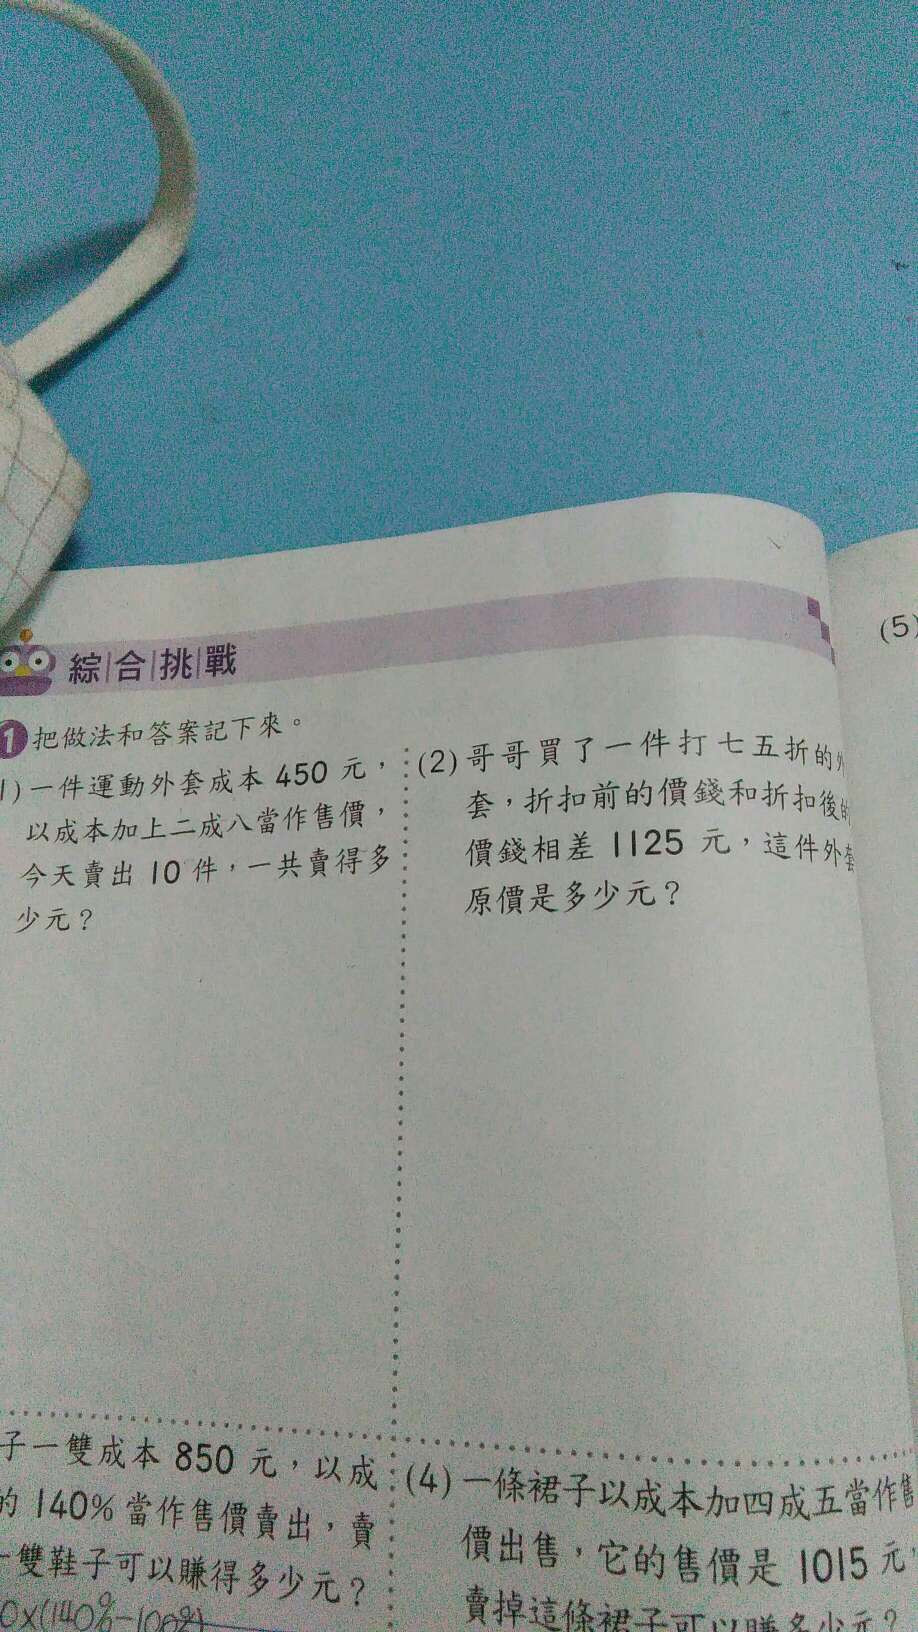 綜合挑戰
1 把做法和答案記下來。
1)一件運動外套成本 450 元，
以成本加上二成八當作售價，
今天賣出 10 件，一共賣得多
少元？
(2) 哥哥買了一件打七五折的外
套，折扣前的價錢和折扣後的
價錢相差 1125 元，這件外套
原價是多少元？
子一雙成本 850 元，以成
的 140% 當作售價賣出，賣
一雙鞋子可以賺得多少元？
0×(140%-100%)
(4) 一條裙子以成本加四成五當作售
價出售，它的售價是 1015 元，
賣掉這條裙子可以賺多少元？
(5)